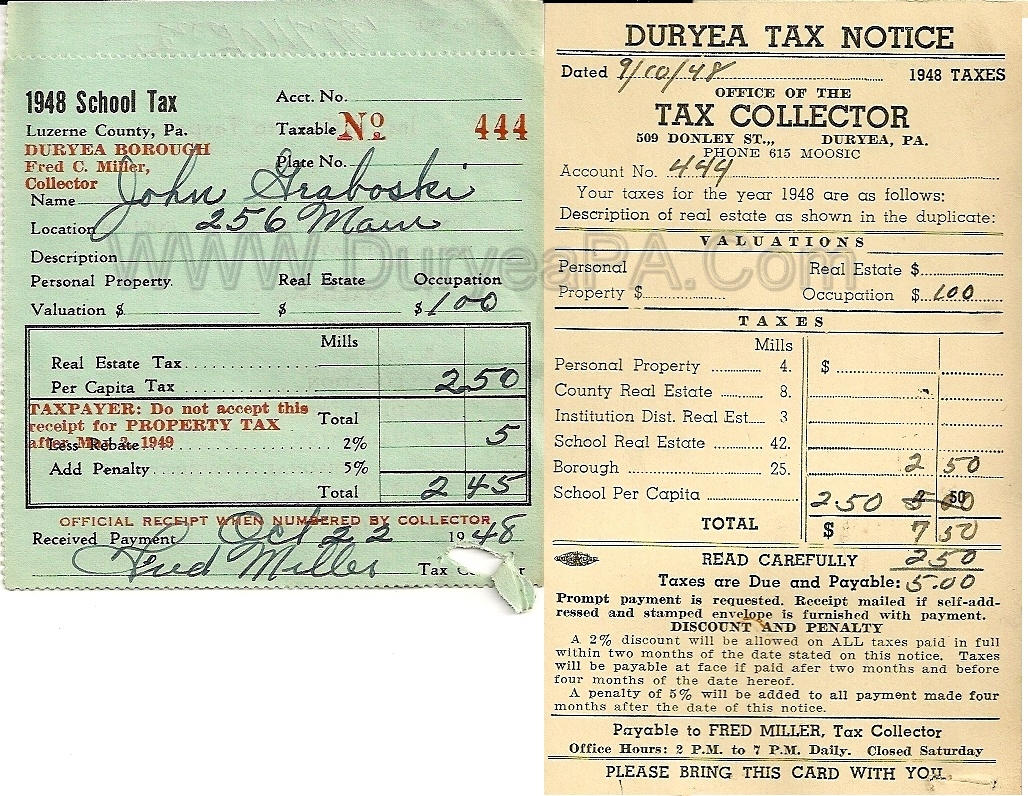 1948 School Tax
Luzerne County, Pa.
DURYEA BOROUGH
Fred C. Miller,
Collector
Acct. No.
Taxable No 444
Plate No.
Name John Graboski
Location 256 Main
Description
Personal Property. Real Estate Occupation
Valuation $ $ $100
Mills
Real Estate Tax
Per Capita Tax 2 50
TAXPAYER: Do not accept this
receipt for PROPERTY TAX
after 1949
Total
Less Rebate 2% 5
Add Penalty 5%
Total 2 45
OFFICIAL RECEIPT WHEN NUMBERED BY COLLECTOR
Received Payment Oct 22 1948
Fred Miller Tax
DURYEA TAX NOTICE
Dated 9/10/48 1948 TAXES
OFFICE OF THE
TAX COLLECTOR
509 DONLEY ST.,, DURYEA, PA.
PHONE 615 MOOSIC
Account No. 444
Your taxes for the year 1948 are as follows:
Description of real estate as shown in the duplicate:
VALUATIONS
Personal Real Estate $
Property $ Occupation $ 100
TAXES
Mills
Personal Property 4. $
County Real Estate 8.
Institution Dist. Real Est. 3
School Real Estate 42.
Borough 25. 2 50
School Per Capita 2.50
TOTAL $ 7 50
READ CAREFULLY 2 50
Taxes are Due and Payable: 5.00
Prompt payment is requested. Receipt mailed if self-add-
ressed and stamped envelope is furnished with payment.
DISCOUNT AND PENALTY
A 2% discount will be allowed on ALL taxes paid in full
within two months of the date stated on this notice. Taxes
will be payable at face if paid afer two months and before
four months of the date hereof.
A penalty of 5% will be added to all payment made four
months after the date of this notice.
Payable to FRED MILLER, Tax Collector
Office Hours: 2 P.M. to 7 P.M. Daily. Closed Saturday
PLEASE BRING THIS CARD WITH YOU
WWW.DuryeaPA.Com